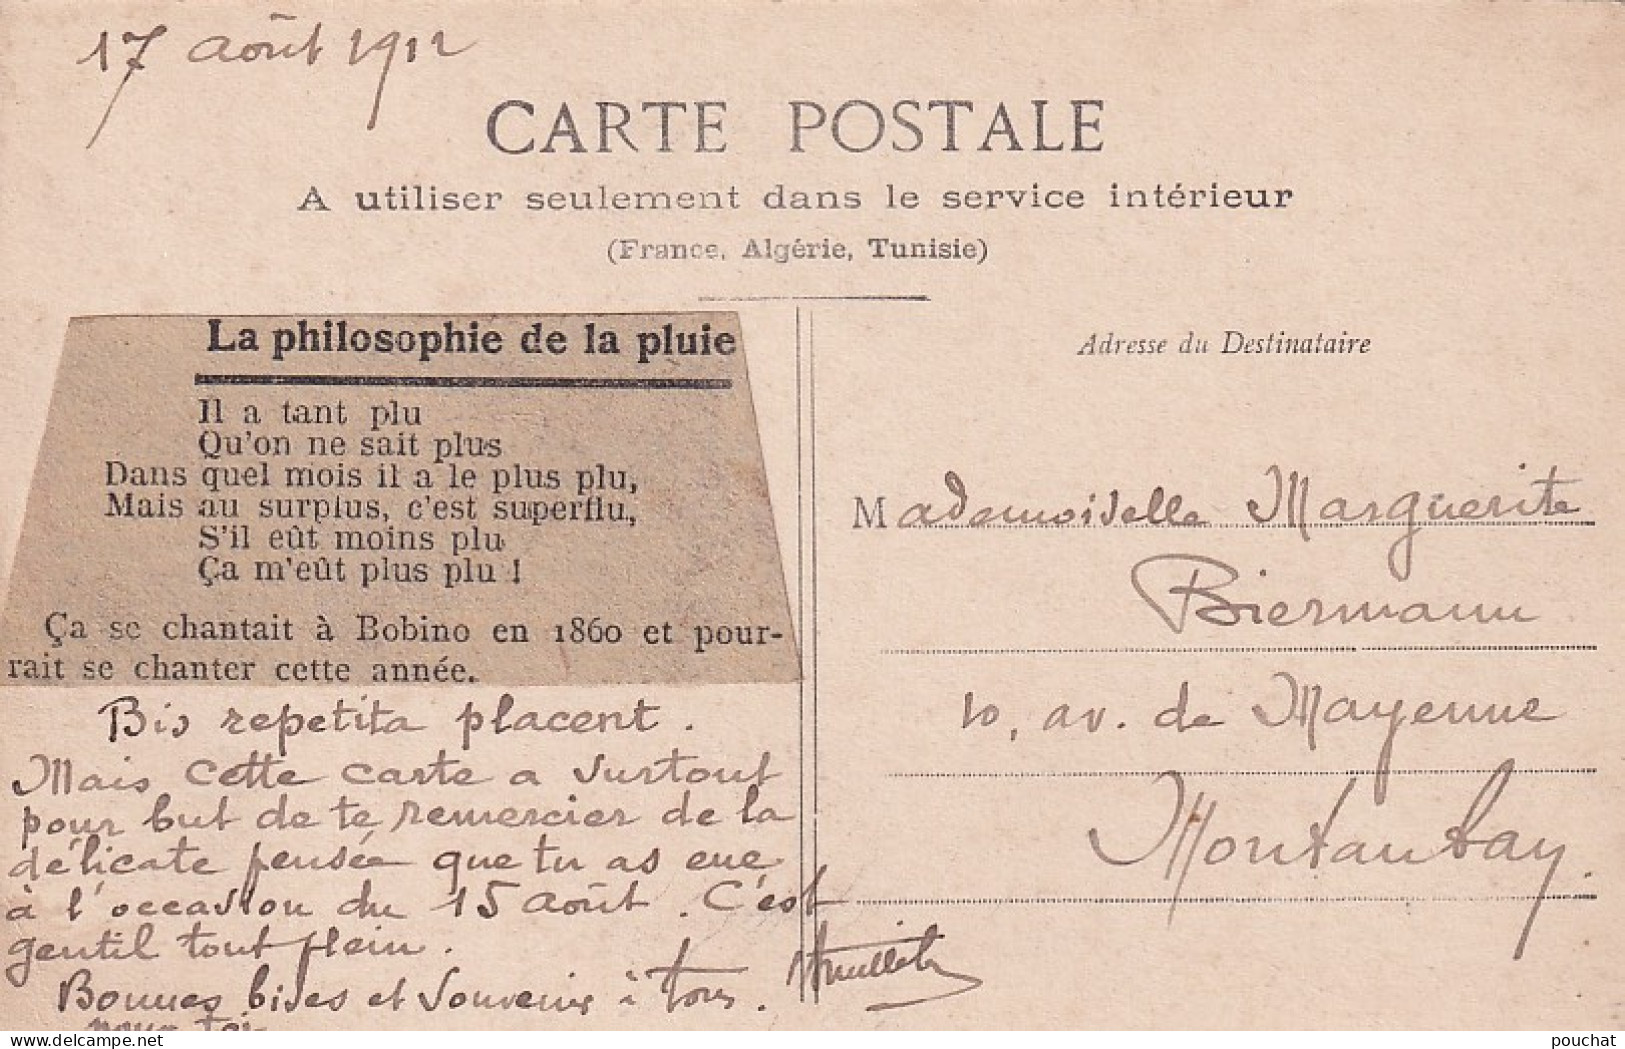 17 août 1912
CARTE POSTALE
A utiliser seulement dans le service intérieur
(France, Algérie, Tunisie)
La philosophie de la pluie
Il a tant plu
Qu'on ne sait plus
Dans quel mois il a le plus plu,
Mais au surplus, c'est superflu,
S'il eût moins plu
Ça m'eût plus plu !
Ça se chantait à Bobino en 1860 et pour-
rait se chanter cette année.
Bis repetita placent.
Mais cette carte a surtout
pour but de te remercier de la
délicate pensée que tu as eue
à l'occasion du 15 août. C'est
gentil tout plein.
Bonnes bises et souvenirs à tous.
pour toi
Adresse du Destinataire
Mademoiselle Marguerite
Biermann
10, av. de Mayenne
Montauban.
www.delcampe.net
pouchat